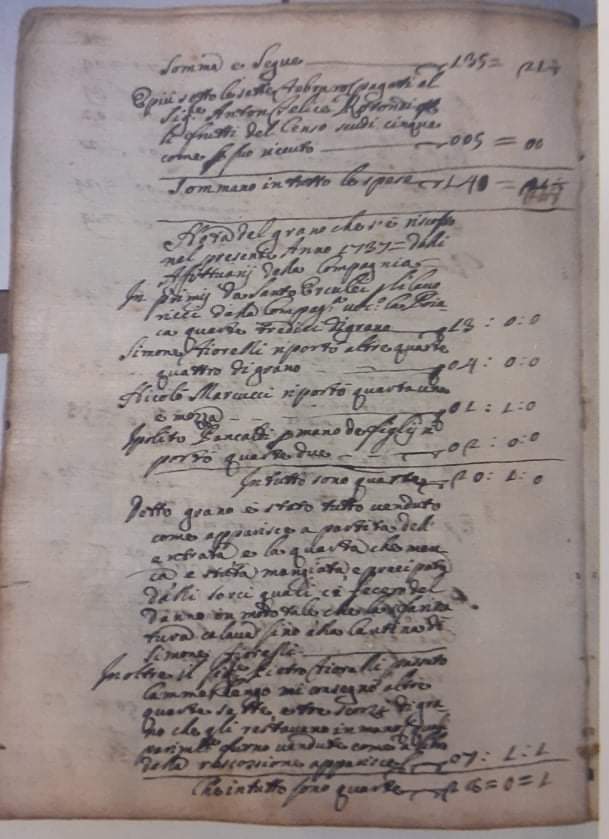 Somma e Segue 135 =
E più sotto li sette Febraro pagati al
Sig.e Anton Felice Rotondi p
li frutti del Censo scudi cinque
come p suo riceuto 005 = 00
Sommano in tutto le spese 140 =
Nota del grano che s'è riscosso
nel presente Anno 1737 = dalli
Affittuarij della Compagnia
In primis da Santo Ercolei p li lauo
ricci della Compag.a
ca quarte tredici di grano 13 : 0 : 0
Simone Fiorelli riportò altre quarte
quattro di grano 04 : 0 : 0
Nicolò Marcucci riportò quarta una
e mezza 01 : 1 : 0
Ipolito Pancalli p mano de figlij ri
portò quarte due 02 : 0 : 0
In tutto sono quarte 20 : 1 : 0
Detto grano è stato tutto venduto
come apparisce a partita dell'
entrata e la quarta che man
ca è stata mangiata e precipitata
dalli sorci quali ci fecero del
danno in modo tale che la
tura calaua sino alla cantina di
Simone Fiorelli
In oltre il Sig.e Pietro Fiorelli
Cammerlengo mi consegnò altre
quarte sette e tre scorzi di gra
no che gli restauano in mano
parim.te furno vendute come a
della riscossione apparisce 07 : 1 : 1
Che in tutto sono quarte 28 = 0 = 1